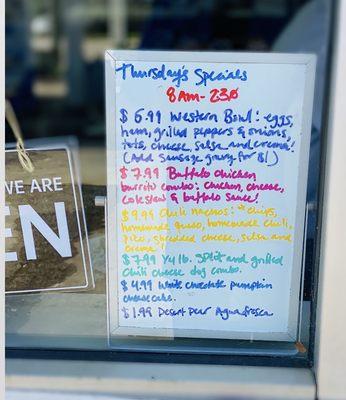 Thursday's Specials
8am - 230
$6.99 Western Bowl: eggs,
ham, grilled peppers & onions,
tots, cheese, salsa and crema!
(Add sausage gravy for $1)
$7.99 Buffalo chicken
burrito combo: chicken, cheese,
coleslaw & buffalo sauce!
$9.99 Chili Nachos: chips,
homemade queso, homemade chili,
pico, shredded cheese, salsa and
crema!
$7.99 1/4 lb. split and grilled
chili cheese dog combo.
$4.99 White chocolate pumpkin
cheesecake.
$1.99 Desert Pear Agua fresca
WE ARE
EN